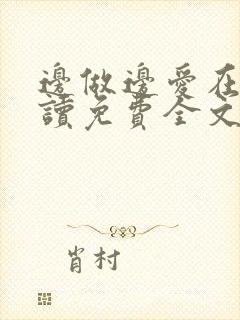 邊做邊愛在
讀免費全文
肖村